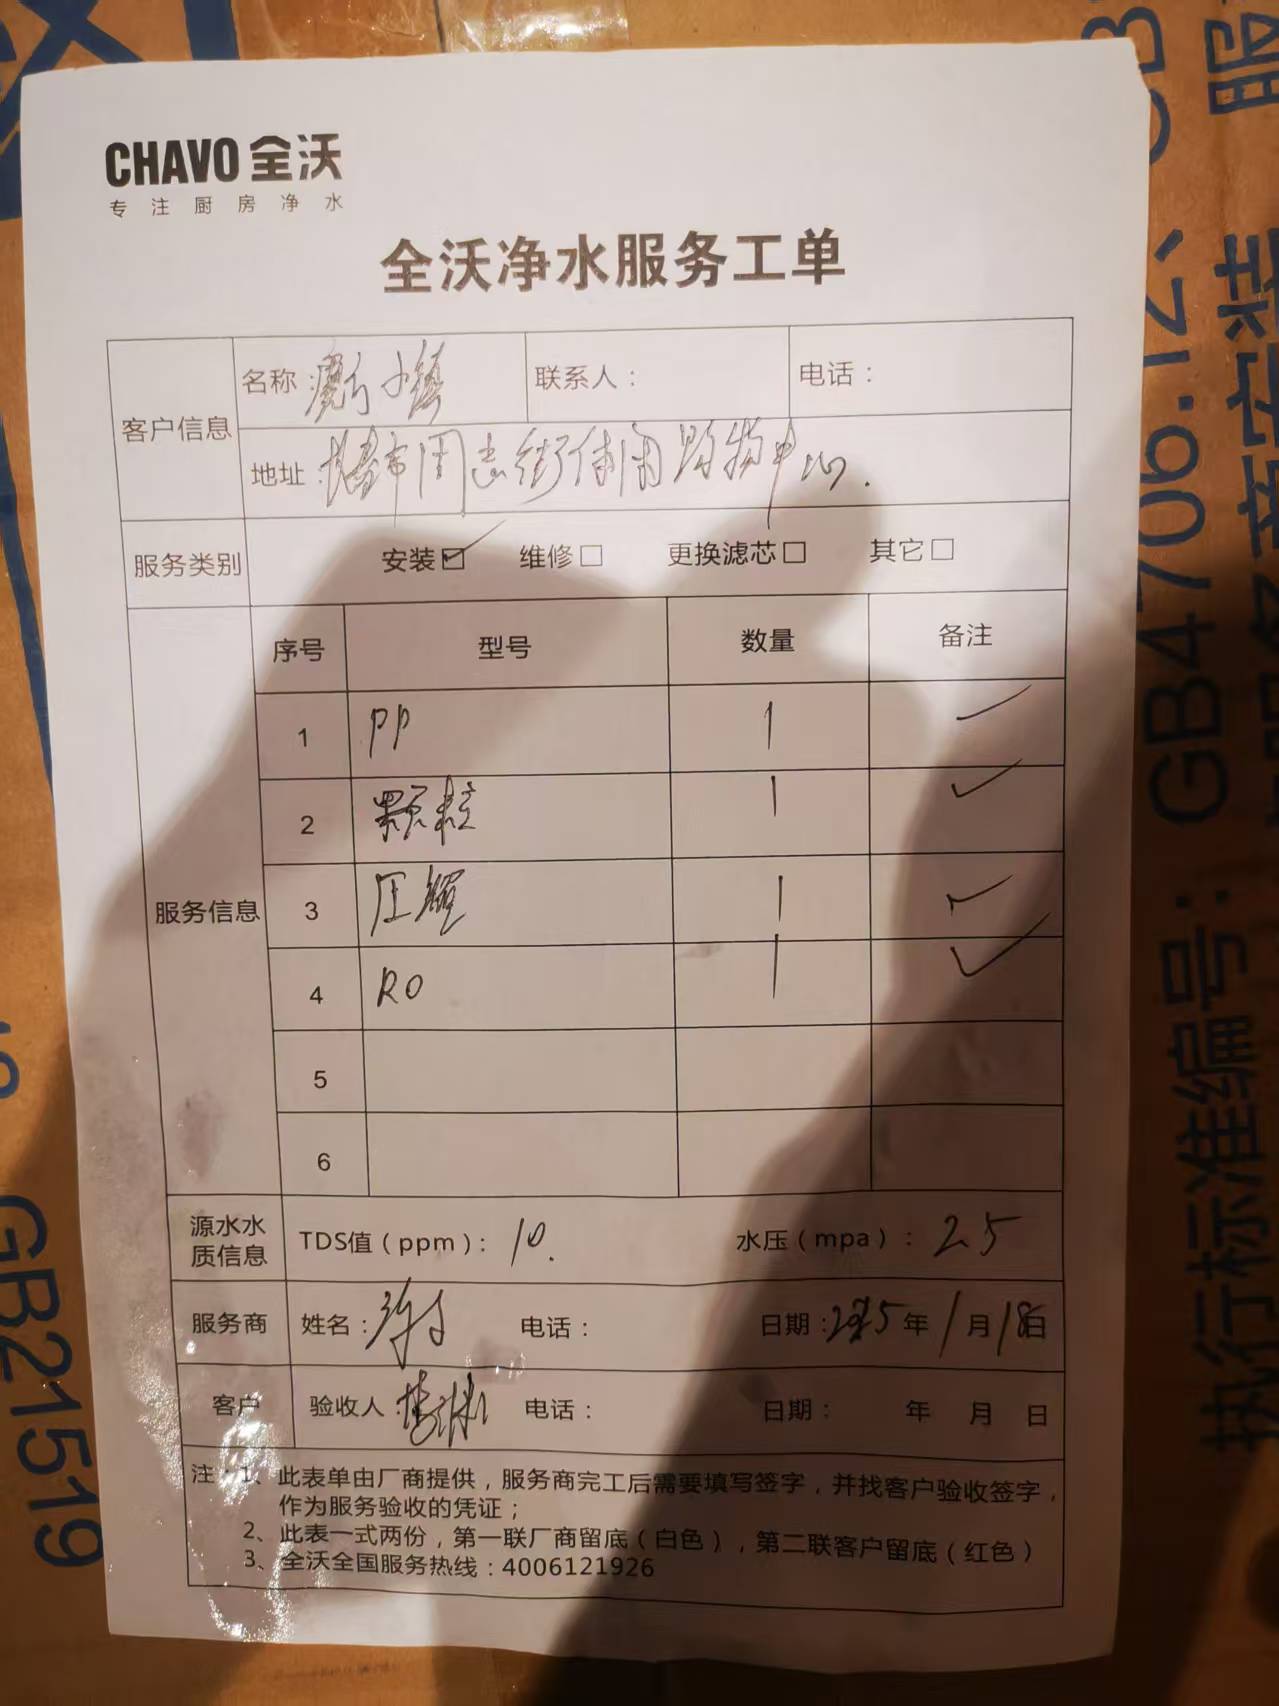 CHAVO 全沃
专注厨房净水
全沃净水服务工单
客户信息
名称： 小镇
联系人：
电话：
地址： 市 街 购物中心.
服务类别
安装☑ 维修□ 更换滤芯□ 其它□
服务信息
序号 型号 数量 备注
1 PP 1 ✓
2 颗粒 1 ✓
3 压 1 ✓
4 RO 1 ✓
5
6
源水水
质信息
TDS值（ppm）：10. 水压（mpa）：25
服务商 姓名： 电话： 日期：2025年1月18日
客户 验收人： 电话： 日期： 年 月 日
注：1、此表单由厂商提供，服务商完工后需要填写签字，并找客户验收签字，
作为服务验收的凭证；
2、此表一式两份，第一联厂商留底（白色），第二联客户留底（红色）
3、全沃全国服务热线：4006121926
GB21519
GB4706.12、
执行标准编号：